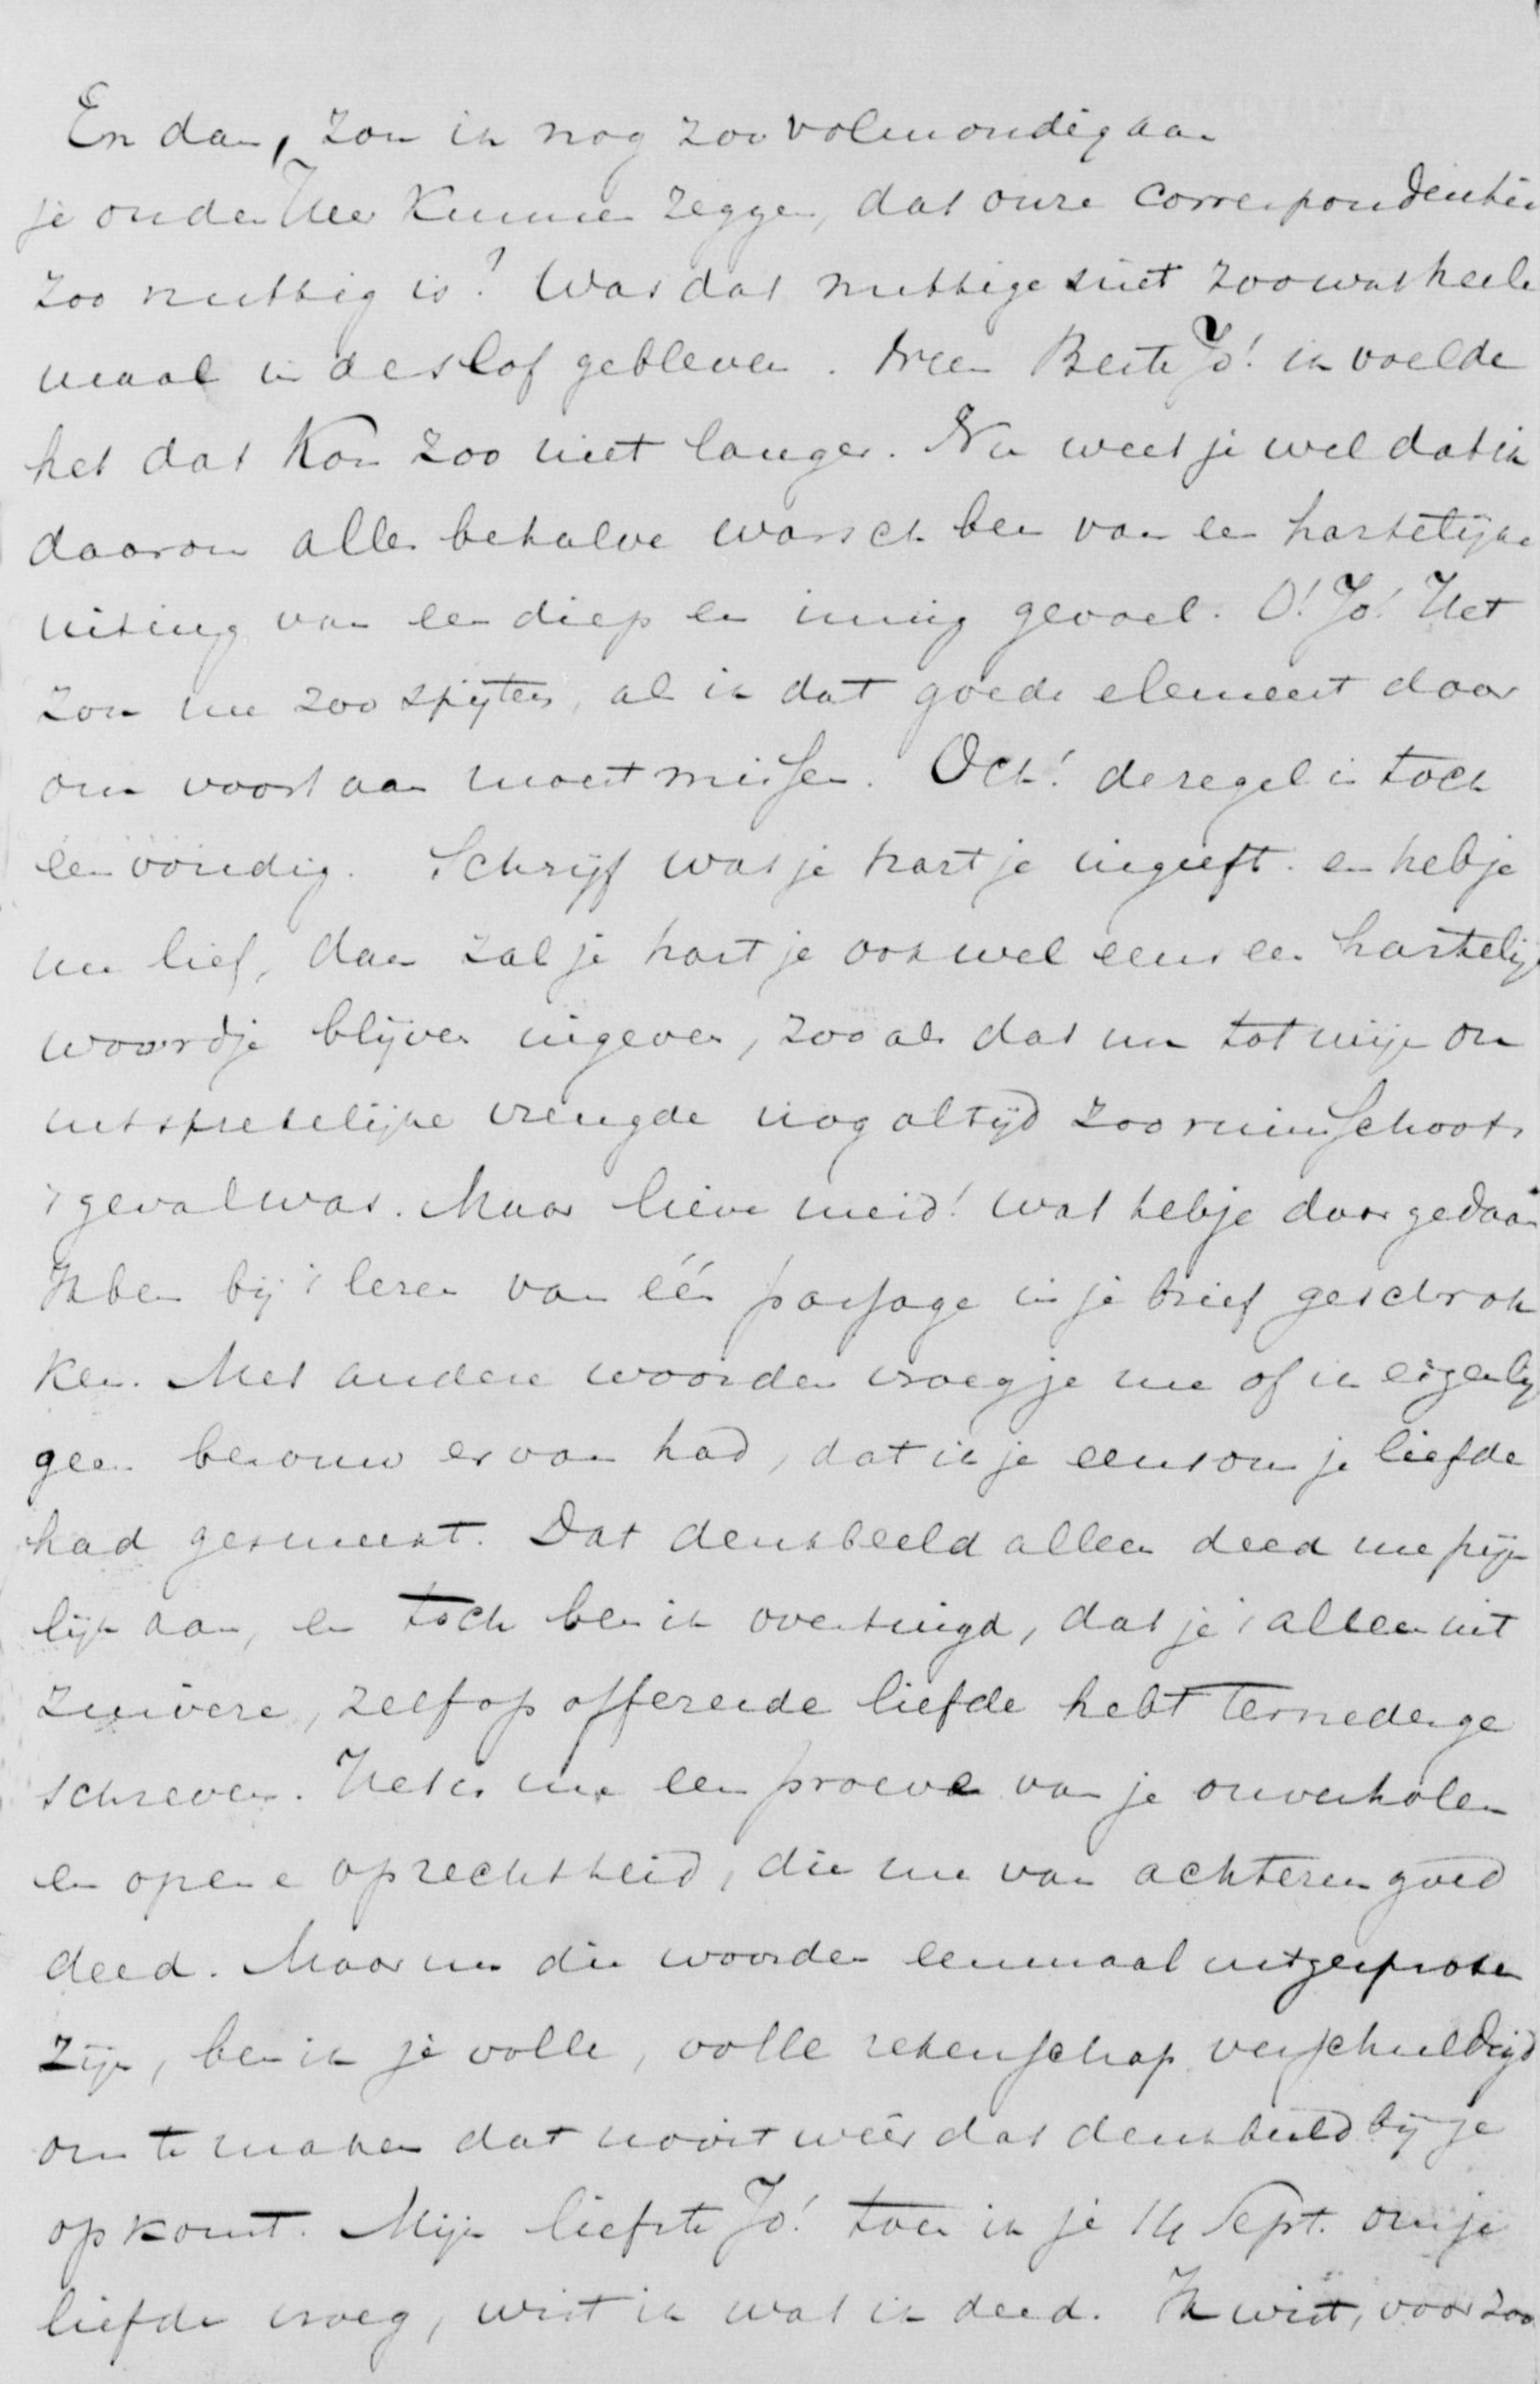 En dan, zou ik nog zoo volmondig aan
je ouders kunnen zeggen, dat onze correspondentie
zoo nuttig is? Was dat nuttige niet zoowat heele
maal in de slof gebleven. Neen Beste Jo! ik voelde
het dat kon zoo niet langer. Nu weet je wel dat ik
daarom alles behalve warsch ben van een hartelijke
uiting van een diep en innig gevoel. O! Jo! Het
zou me zoo spijten, als ik dat goede element daar
om voortaan moest missen. Och! de regel is toch
eenvoudig. Schrijf wat je hartje ingeeft en heb je
me lief, dan zal je hartje ook wel eens een hartelijk
woordje blijven ingeven, zooals dat nu tot mijn on
uitsprekelijke vreugde nog altijd zoo ruimschoots
't geval was. Maar lieve meid! wat heb je daar gedaan
Ik ben bij 't lezen van één passage in je brief geschrok
ken. Met andere woorden vroeg je me of ik eigenlijk
geen berouw ervan had, dat ik je eens om je liefde
had gesmeekt. Dat denkbeeld alleen deed me pijn
lijk aan, en toch ben ik overtuigd, dat je 't alleen uit
zuivere, zelfopofferende liefde hebt ternederge
schreven. Het is me een proeve van je onverholen
en opene oprechtheid, die me van achteren goed
deed. Maar nu die woorden eenmaal uitgesproken
zijn, ben ik je volle, volle rekenschap verschuldigd
om te maken dat nooit weêr dat denkbeeld bij je
opkomt. Mijn liefste Jo! toen ik je 14 Sept. om je
liefde vroeg, wist ik wat ik deed. Ik wist, voor zoo